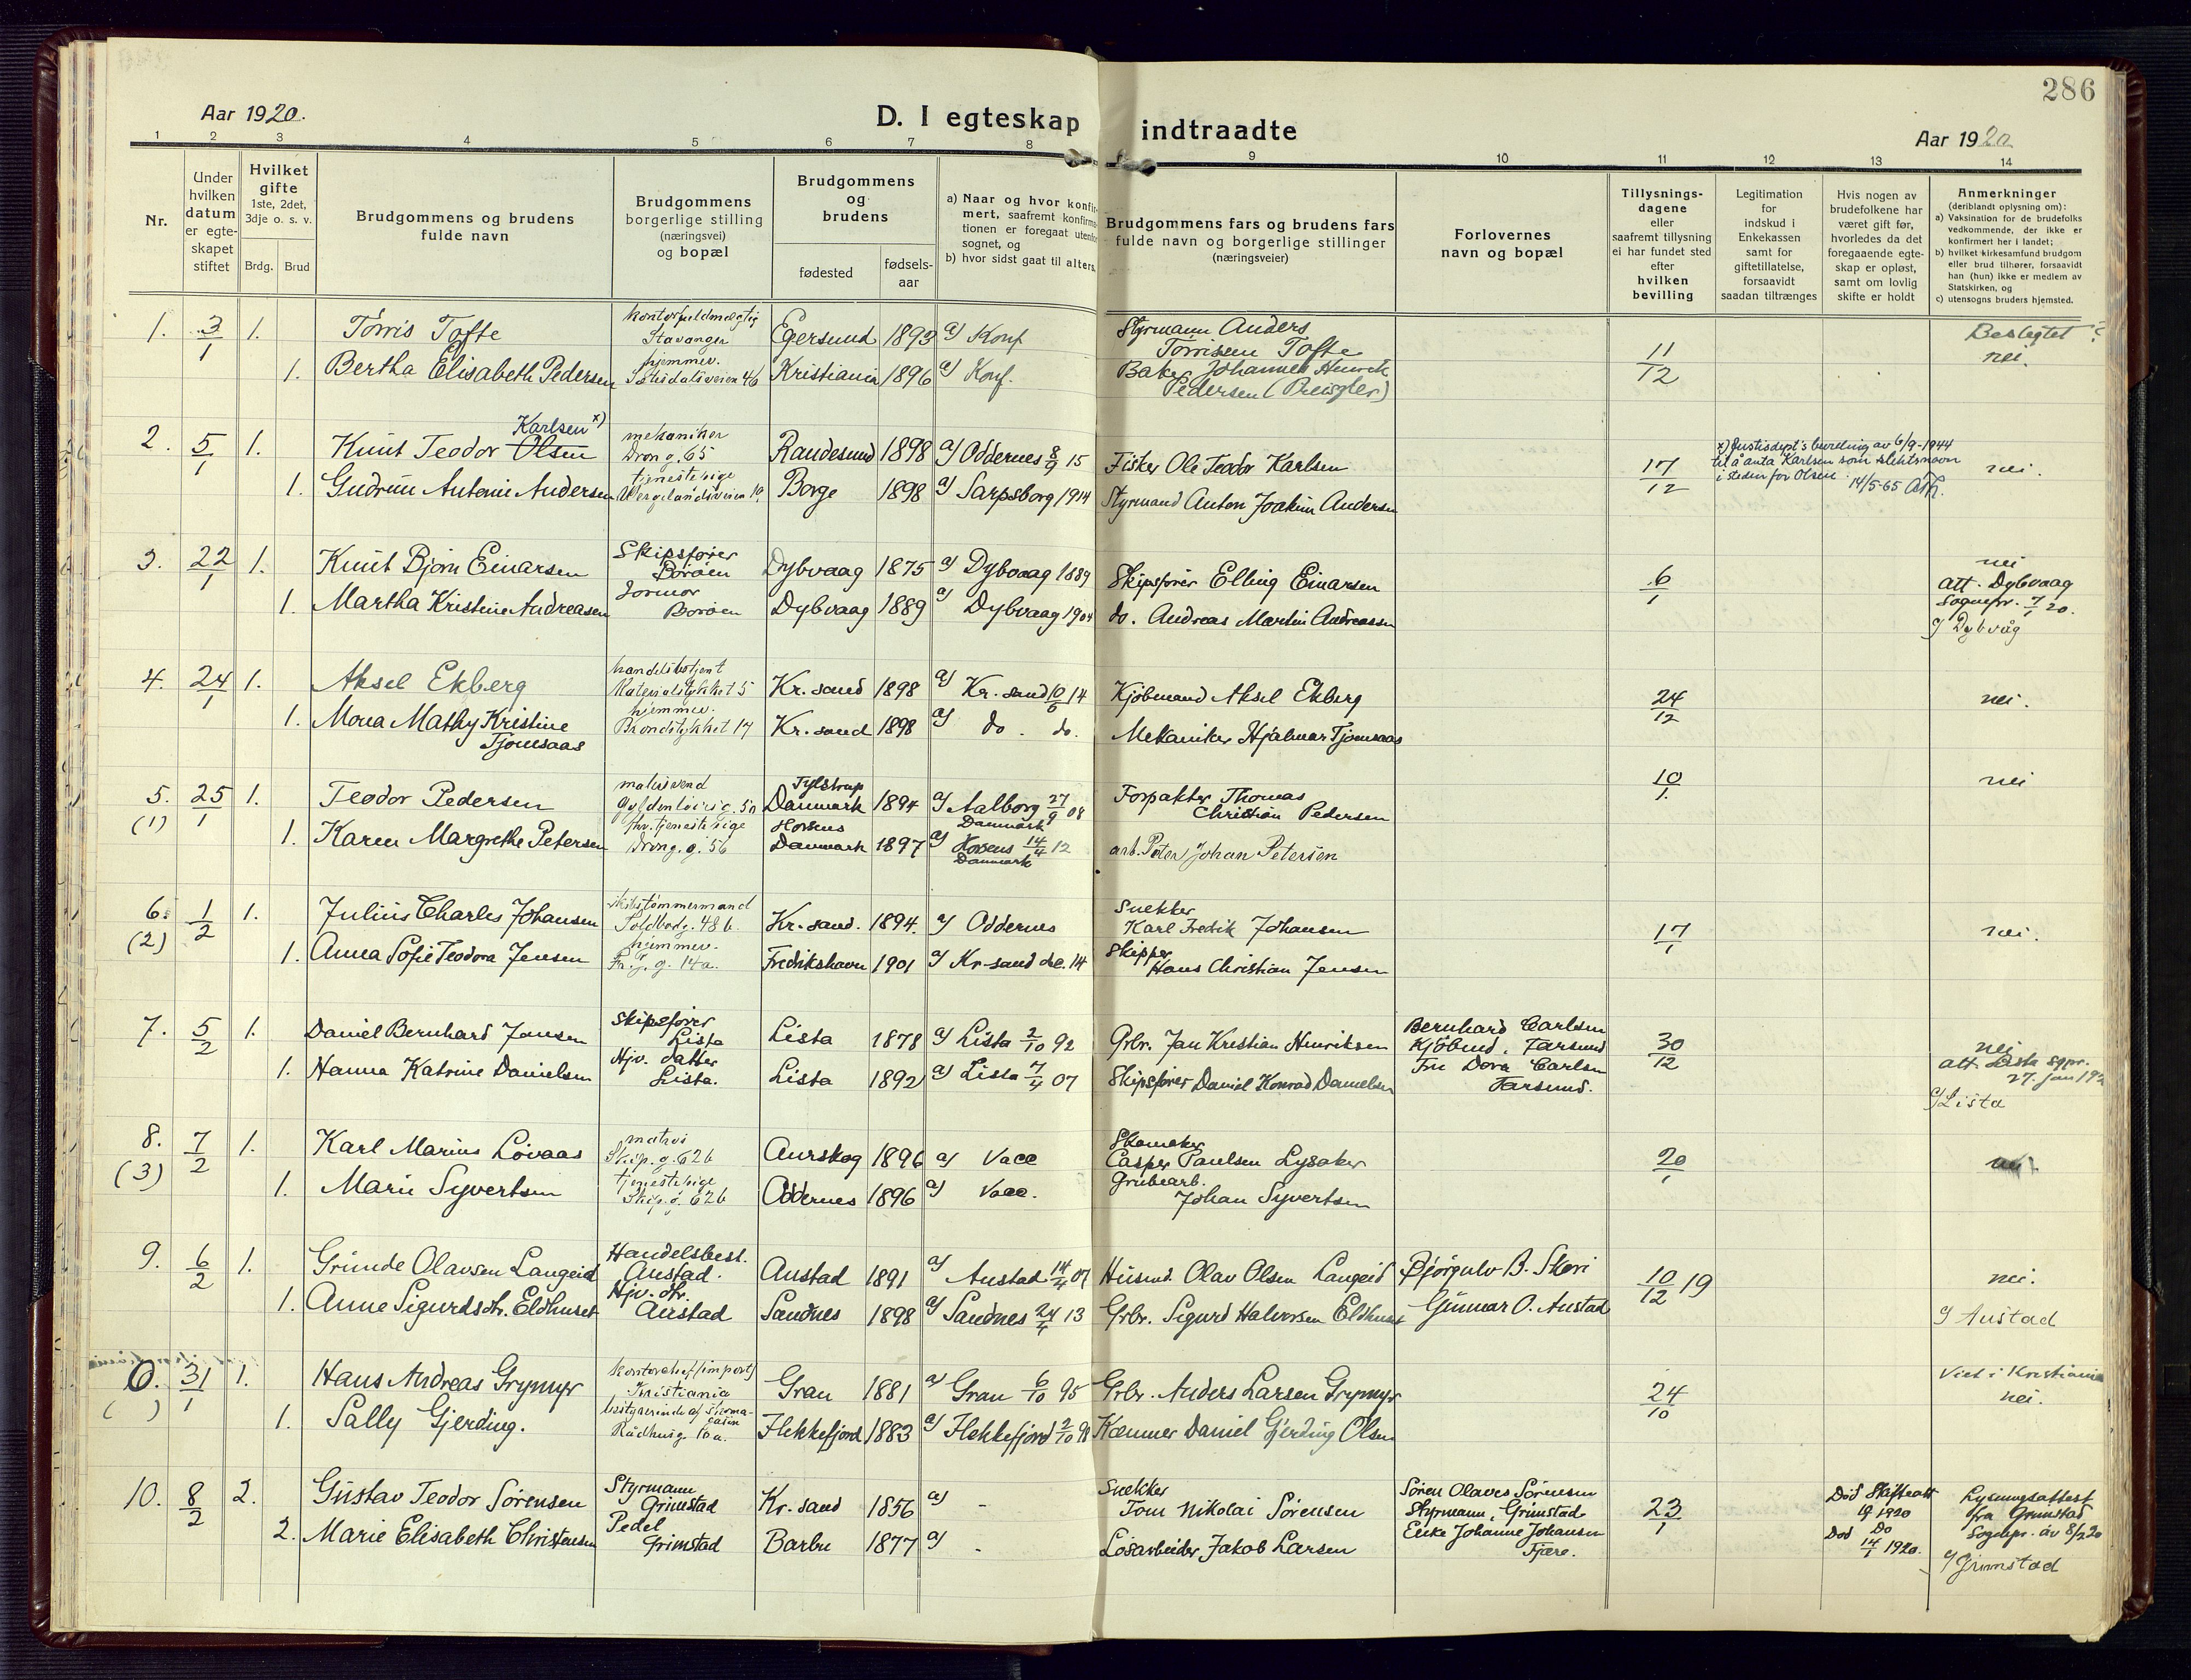 286
Aar 1920.
D. I egteskap indtraadte
Aar 1920
1 2 3 4 5 6 7 8 9 10 11 12 13 14
Nr.
Under hvilken datum er egteskapet stiftet
Hvilket gifte 1ste, 2det, 3dje o. s. v.
Brdg. Brud
Brudgommens og brudens fulde navn
Brudgommens borgerlige stilling (næringsvei) og bopæl
Brudgommens og brudens
fødested
fødselsaar
a) Naar og hvor konfirmert, saafremt konfirmationen er foregaat utenfor sognet, og
b) hvor sidst gaat til alters.
Brudgommens fars og brudens fars fulde navn og borgerlige stillinger (næringsveier)
Forlovernes navn og bopæl
Tillysningsdagene eller saafremt tillysning ei har fundet sted efter hvilken bevilling
Legitimation for indskud i Enkekassen samt for giftetillatelse, forsaavidt saadan tiltrænges
Hvis nogen av brudefolkene har været gift før, hvorledes da det foregaaende egteskap er opløst, samt om lovlig skifte er holdt
Anmerkninger (deriblandt oplysning om):
a) Vaksination for de brudefolks vedkommende, der ikke er konfirmert her i landet;
b) hvilket kirkesamfund brudgom eller brud tilhører, forsaavidt han (hun) ikke er medlem av Statskirken, og
c) utensogns bruders hjemsted.
1. 3/1 1. Tørris Tofte kontorfuldmægtig Stavanger Egersund 1893 a) Konf Styrmann Anders Tørrisen Tofte 11/12 Beslegtet? nei.
1. Bertha Elisabeth Pedersen hjemmev. Setesdalsveien 46 Kristiania 1896 a) Konf. Baker Johannes Henrik Pedersen
2. 5/1 1. Knut Teodor Olsen Karlsen x) mekaniker Dron g. 65 Randesund 1898 a) Oddernes 8/9 15 Fisker Ole Teodor Karlsen 17/12 nei.
x) Justisdept's bevilling av 6/9-1944 til å anta Karlsen som slektsnavn i steden for Olsen. 14/5-65
1. Gudrun Antonie Andersen tjenestepige Wergelandsveien 10. Borge 1898 a) Sarpsborg 1914 Styrmand Anton Joakim Andersen
3. 22/1 1. Knut Bjørn Einarsen Skipsfører Borøen Dybvaag 1875 a) Dybvaag 1889 Skipsfører Elling Einarsen 6/1 nei
att. Dybvaag Sognepr. 7/1 20.
c) Dybvåg
1. Martha Kristine Andreasen Jormor Borøen Dybvaag 1889 a) Dybvaag 1904 do. Andreas Martin Andreassen
4. 24/1 1. Aksel Ekberg handelsbetjent Materialstykket 5 Kr. sand 1898 a) Kr. sand 10/6 14 Kjøbmand Aksel Ekberg 24/12 nei.
1. Mona Mathy Kristine Tjomsaas hjemmev. Brøndstykket 17 Kr. sand 1898 a) do. do. Mekaniker Hjalmar Tjomsaas
5. (1) 25/1 1. Teodor Pedersen malersvend Gyldenløvesg. 50 Tylstrup Danmark 1894 a) Aalborg 27/9 08 Danmark Forpakter Thomas Christian Pedersen 10/1. nei
1. Karen Margrethe Petersen fhv. tjenestepige Dron g. g. 56 Horsens Danmark 1897 a) Horsens 14/4 12 Danmark arb. Peter Johan Petersen
6. (2) 1/2 1. Julius Charles Johansen skibstømmermand Toldbodg. 48 b. Kr. sand. 1894. a) Oddernes Snekker Karl Fredrik Johansen 17/1 nei.
1. Anna Sofie Teodora Jensen hjemmev. g. 14a. Fredrikshavn 1901 a) Kr-sand 14 Skipper Hans Christian Jensen
7. 5/2 1. Daniel Bernhard Jansen Skipsfører Lista Lista 1878 a) Lista 2/10 92 Grbr. Jan Kristian Henriksen Bernhard Carlsen Kjøbmd. Farsund 30/12 nei
att. Lista sgpr. 27. jan 192
c) Lista
1. Hanna Katrine Danielsen Hjv. datter Lista. Lista 1892 a) Lista 7/4 07 Skipsfører Daniel Konrad Danielsen Fru Dora Carlsen Farsund.
8. (3) 7/2 1. Karl Marius Løvaas matros Skip. g. 62 b Aurskog 1896 a) Vacc Skomaker Casper Paulsen Lysaker 20/1 nei
1. Marie Syvertsen tjenestepige Skip. g. 62 b Oddernes 1896 a) Vacc. Grubearb. Johan Syvertsen
9. 6/2 1. Grunde Olavsen Langeid Handelsbest. Austad. Austad 1891 a) Austad 14/4 07 Husmd. Olav Olsen Langeid Bjørgulv B. Skeri 10/12 19 nei.
1. Anne Sigurdsdtr. Eldhuset Hjv. dtr. Austad Sandnes 1898 a) Sandnes 24/4 13 Grbr. Sigurd Halvorsen Eldhuset Gunnar O. Austad c) Austad
0. ( ) 31/1 1. Hans Andreas Grymyr kontorchef (import) Kristiania Gran 1881 a) Gran 6/10 95 Grbr. Anders Larsen Grymyr 24/10 Viet i Kristiania nei.
1. Sally Gjerding. bestyrerinde af Rådhusg. 10a. Flekkefjord 1883 a) Flekkefjord 2/10 98 Kæmner Daniel Gjerding Olsen
10. 8/2 2. Gustav Teodor Sørensen Styrmann Grimstad Kr. sand 1856 a) - Snekker Tom Nikolai Sørensen Søren Olaves Sørensen Styrmann, Grimstad 23/1 Død Skifteatt 1920 Lysningsattest fra Grimstad Sognepr. av 8/2 20
2. Marie Elisabeth Christensen Pedel Grimstad Barbu 1877 a) - Løsarbeider Jakob Larsen Enke Johanne Johansen Fjære. Død Do 14/1 1920. c) Grimstad